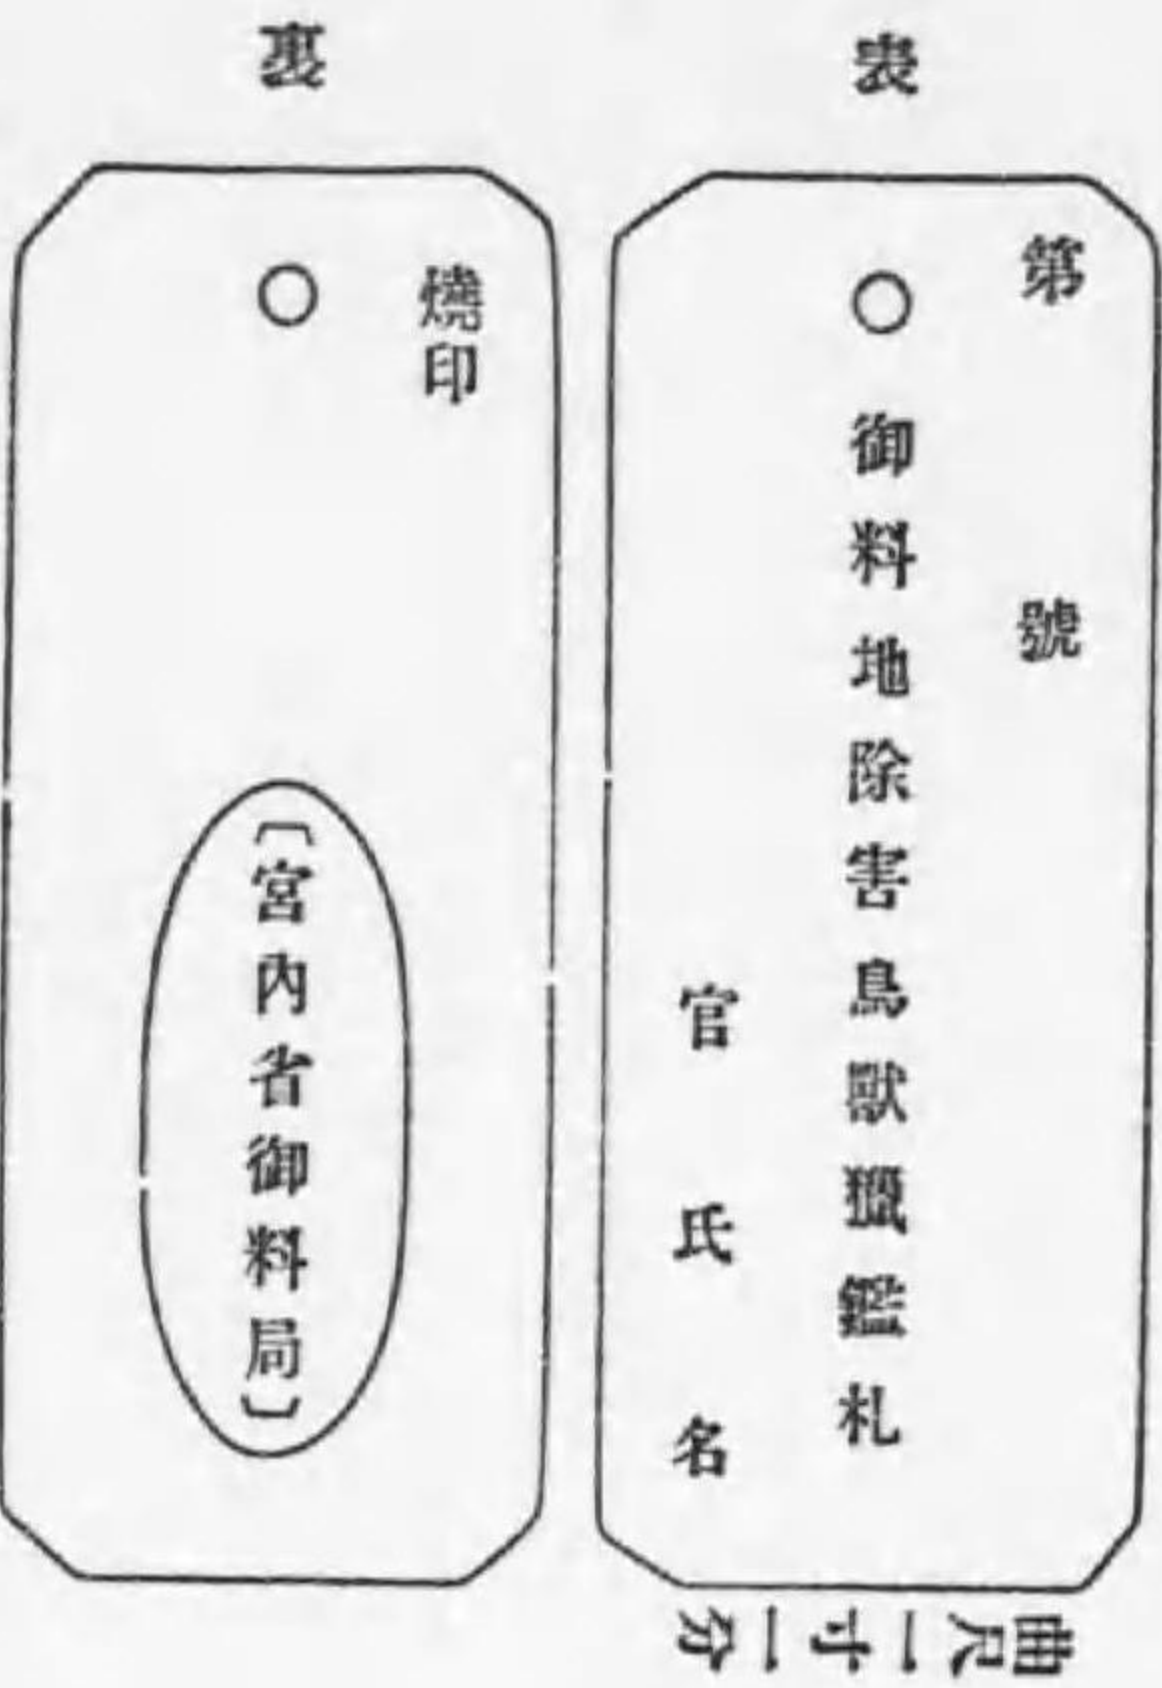 表
第　號
○御料地除害鳥獸獵鑑札
官氏名
曲尺一寸一分
裏
燒印
○
〔宮內省御料局〕